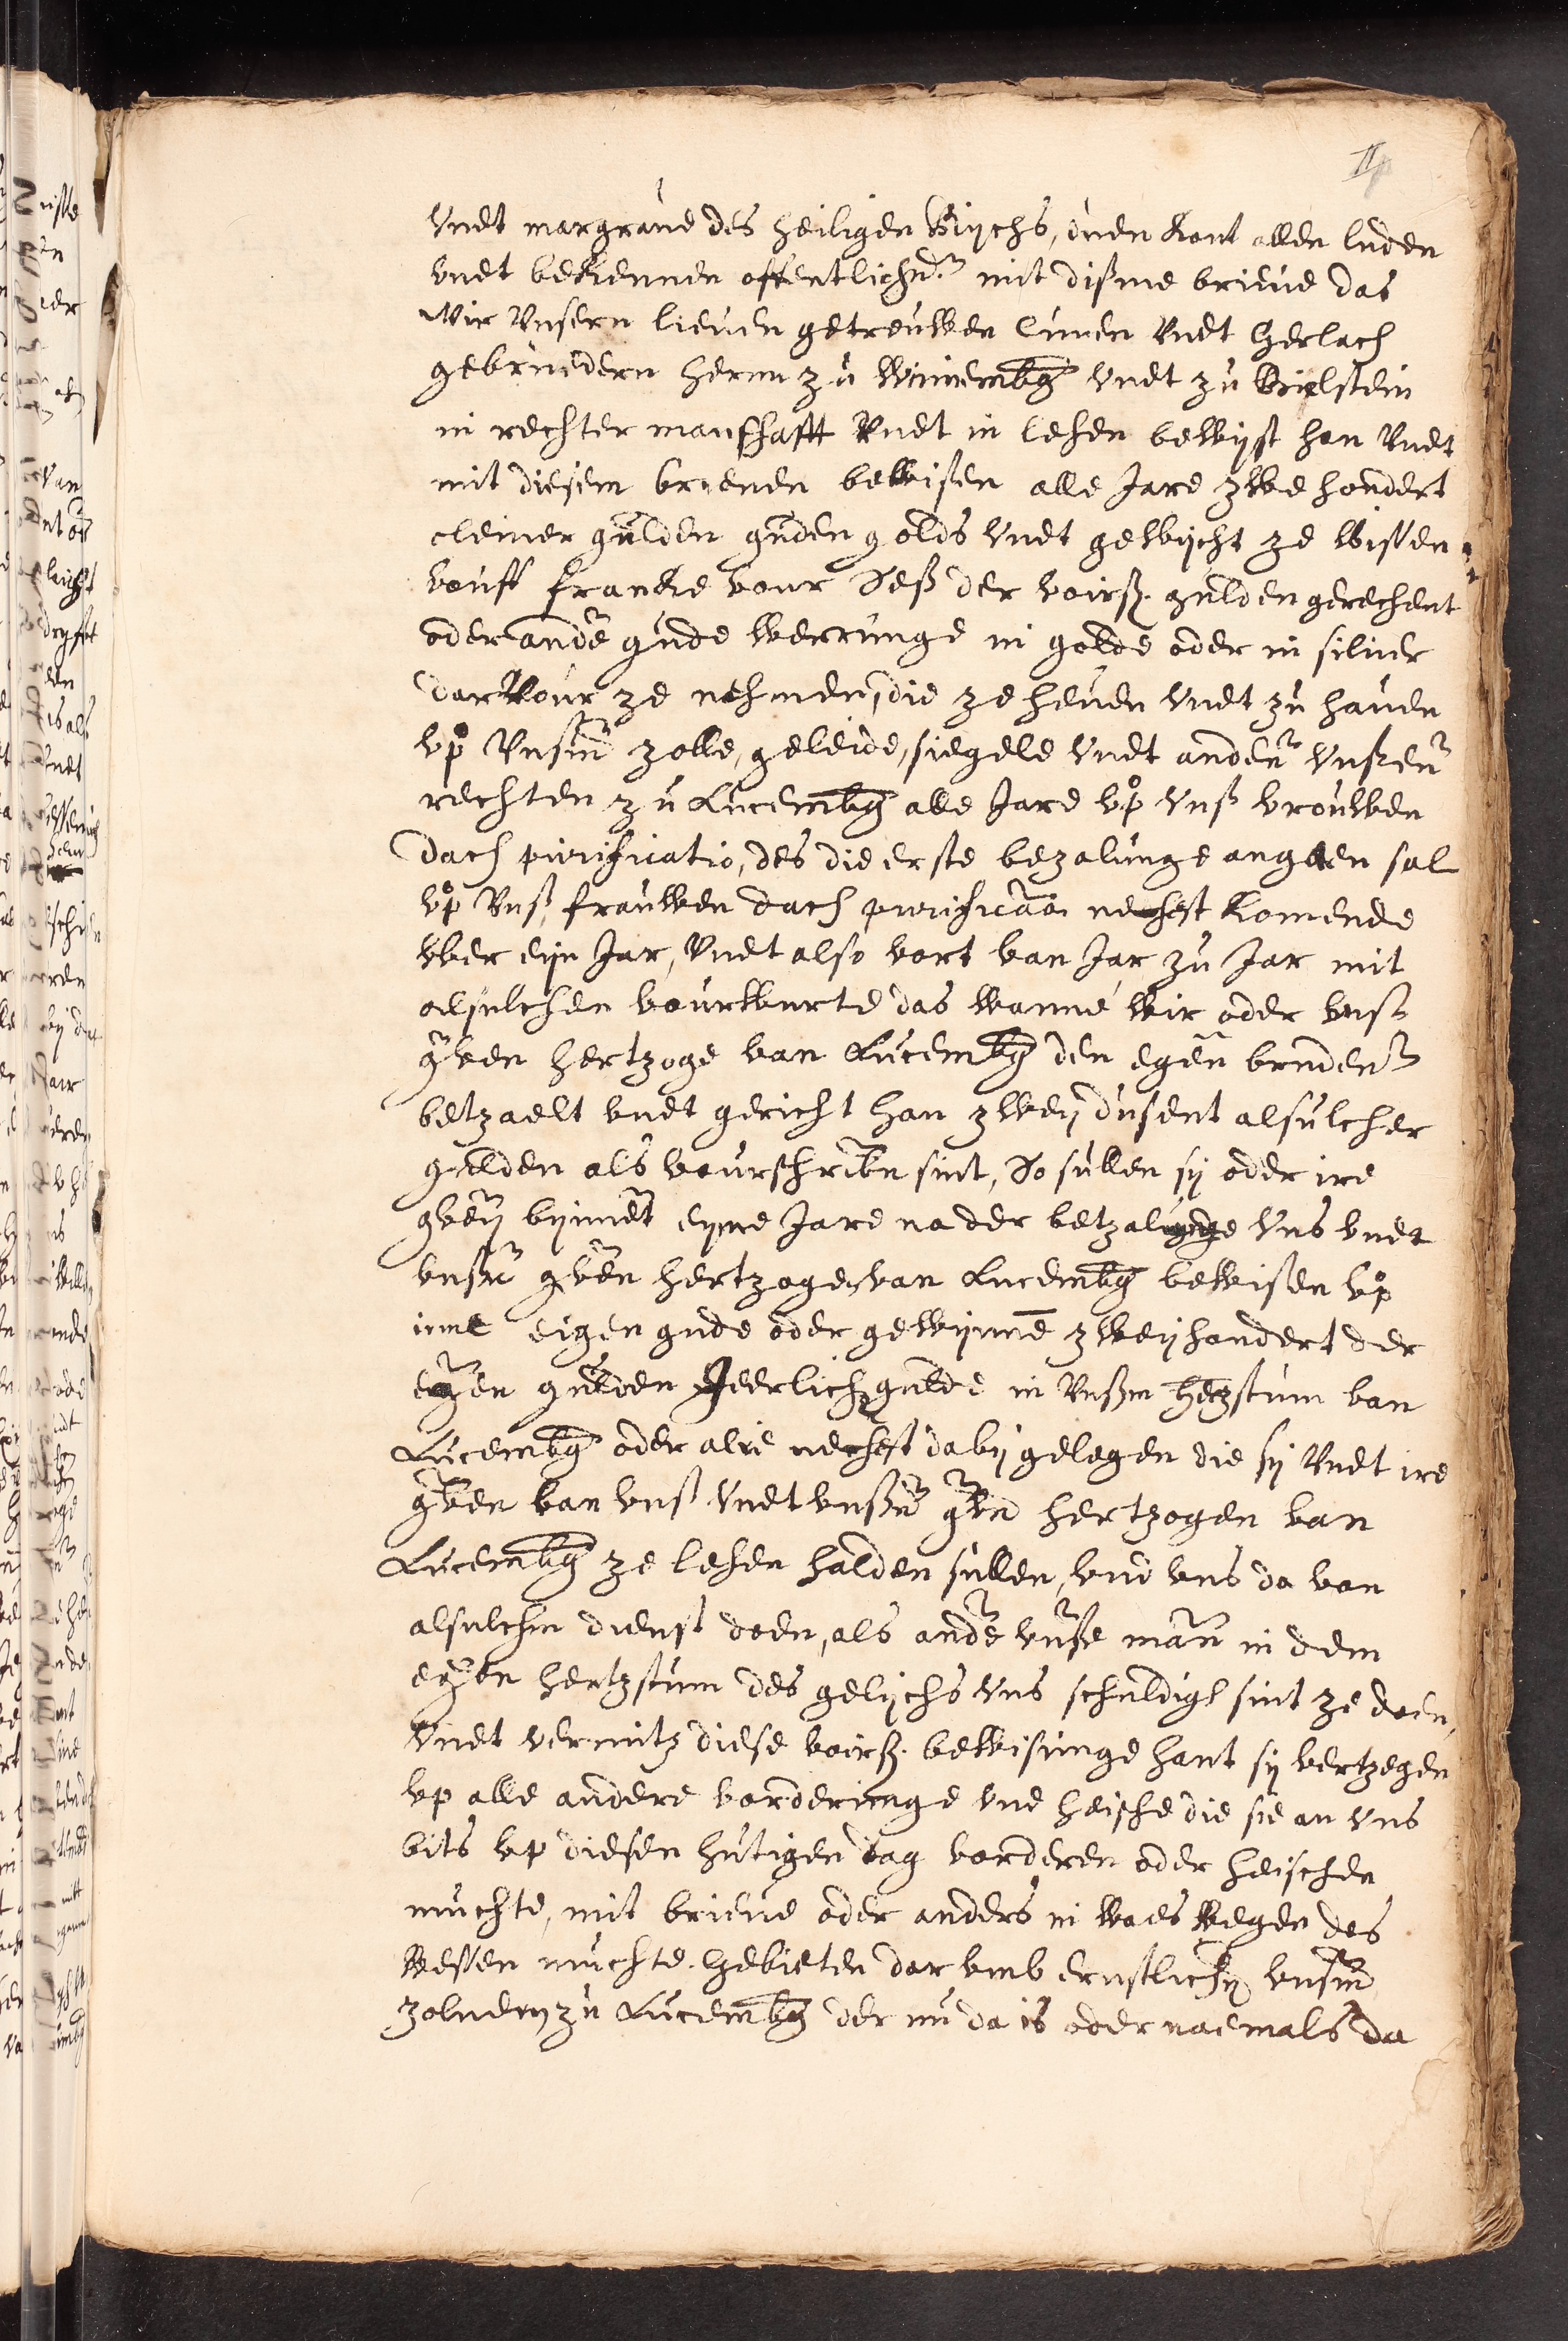 vndt margraue des heiligen Rijchs, duen kont allen luden
vndt bekennen offentlich mit dißme brieue das
Wir Vnsern lieuen getreuwen Cunen Vndt Gerlach
gebruedern herrn zu Winnembg vndt zu Bielstein
in rechter manschafft Vndt in lehen bewijst han Vndt
mit diesem brieuen bewisen alle Jare zwe hondert
cleiner gulden guden golds vndt gewijcht ze wissen
vouff francke vour Seß der voirß. gulden gerechent
oder ande gude werrunge in golde oder in siluer
dar Vour ze nehmen, die ze heuen vndt zu hauen
vp Vnsm zolle, geleide, siegele vndt anden vnßen
rechten zu Lucembg alle Jare vp vnß vrouwen
dach purificatio, des die erste bezalunge angaen sal
vp Vnß frauwen dach purificao nechst komende
vber eijn Jar, Vndt also vort van Jar zu Jar mit
alsulchen vourwurte das wanne wir oder vnß
gven hertzoge van Lucembg den egen bruden
betzaelt vndt gericht han zweij dusent alsulcher
gulden als vourschriben sint, So sullen sij oder ire
gven bijnnet eyme Jare na der betzalunge vns vndt
vnßn gven hertzogen van Lucembg bewisen vp
irme eigen gude oder gewijnne zweijhondert der
egen gulden Jeerlich gulde in Vnßm hertzstum van
Lucembg oder alre nechst dabij gelegen die sij Vndt ire
gven van vnß vndt vnßn gven hertzogen van
Lucembg ze lehen halden sullen, vnd vns da van
alsulchen dienst doen, als ande vnße mann in dem
egen hertzstum des gelijchs vns schuldigh sint ze doen,
vndt vermitz diese voirß. bewisunge hant sij vertzegen
vp alle andere vorderunge vnd heische die sie an vns
bits vp diesen hutigen dag vorderen oder heischen
muchte, mit brieue oder anders in waes wegen des
wessen muchte. Gebieten dar vmb ernstlich vnsm
zolner zu Lucembg der nu da is oder naemals da